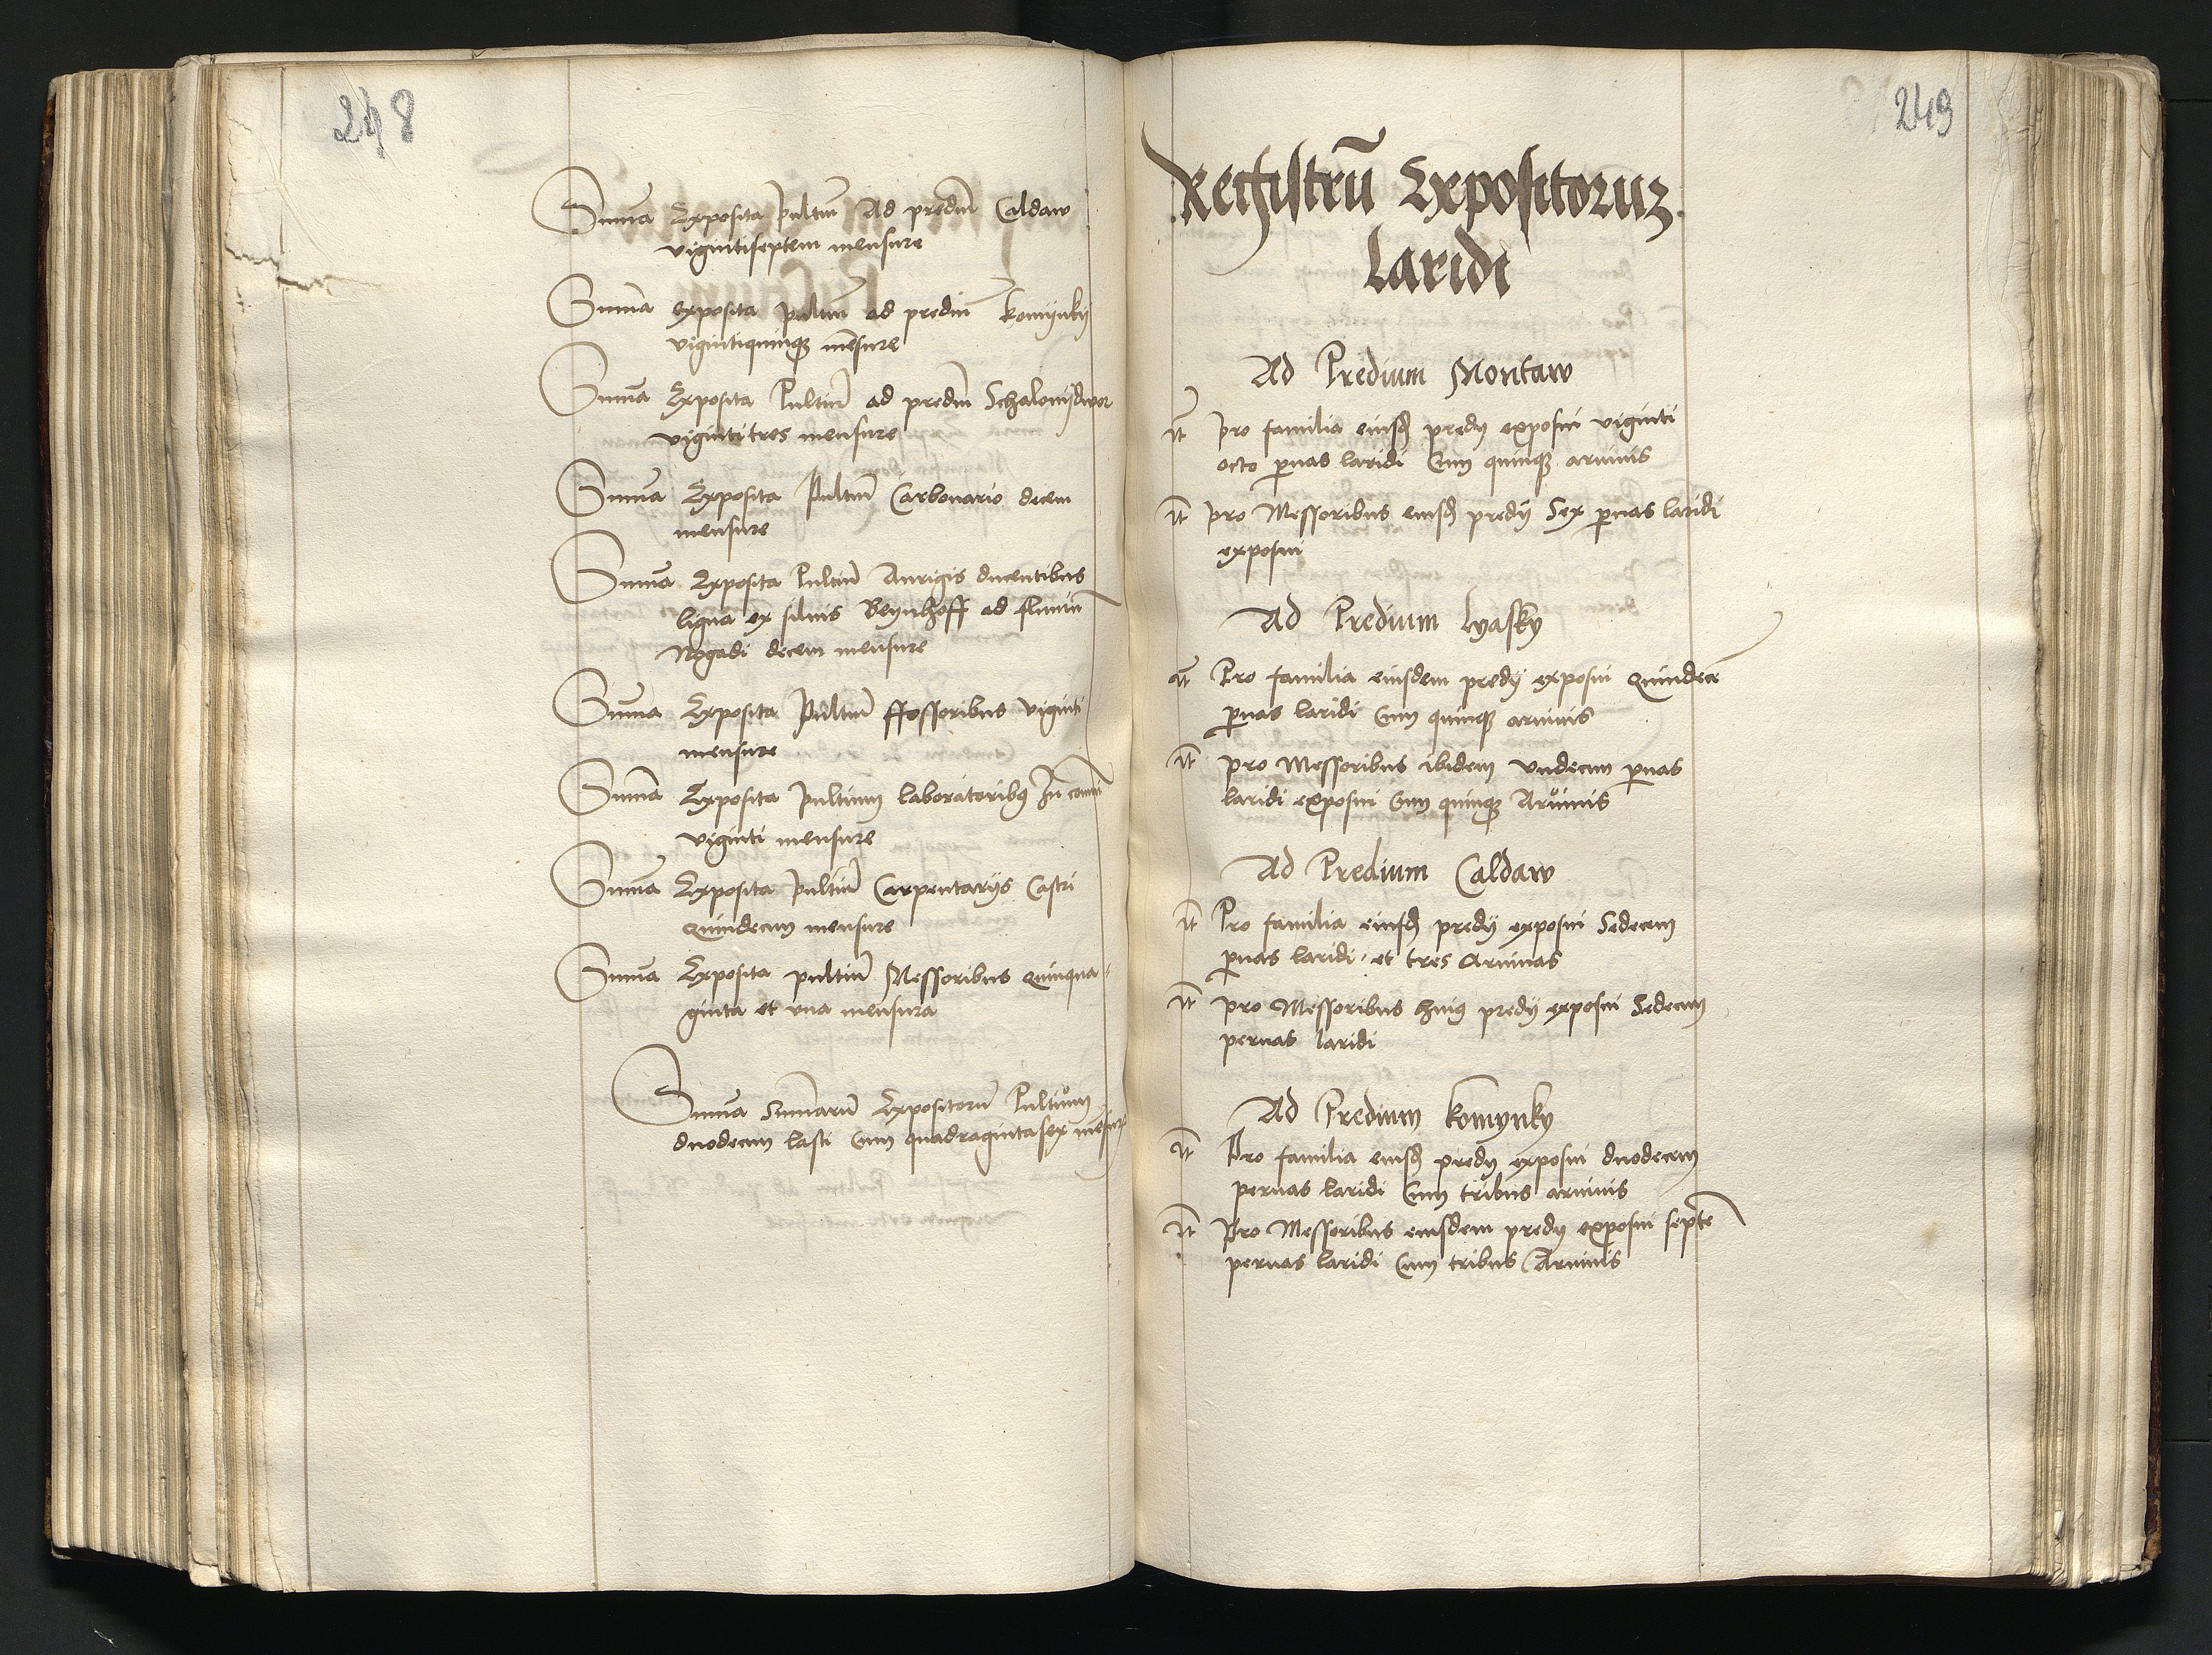 248
Summa Exposita pultium Ad predium Caldaw
vigintiseptem mensure
Summa exposita pultium ad predium komÿnkÿ
vigintiquinqꝫ mēsure
Summa Exposita Pultium ad predium Schaloniſdwor
vigintitres mensure
Summa Exposita Pultium Carbonario decem
mensure
Summa Exposita Pultium Aurigis ducentibus
ligna ex siluis Beynhoff ad fluuiū
Nogadi decem mensure
Summa Exposita Pultium ffossoribus viginti
mensure
Summa Exposita pultium laboratoribꝫ In comūi
viginti mensure
Summa Exposita pultium Carpentarÿs Castri
Quindecim mensure
Summa Exposita pultium Messoribus Quinqua-
ginta et vna mensura
Summa Summarū Expositorū Pultium
duodecim lasti Cum quadragintasex mēsur
249
Regiſtrū Expositoruꝫ
laridi
Ad Predium Montaw
It pro familia eiusd predÿ exposui viginti
octo pernas laridi Cum quinqꝫ aruinis
It pro Messoribus eiusd predÿ Sex pernas laridi
exposui
Ad Predium lyasky
It Pro familia eiusdem predÿ exposui Quindecī
pernas laridi Cum quinqꝫ aruinis
It pro Messoribus ibidem vndecim pernas
laridi exposui Cum quinqꝫ Aruinis
Ad Predium Caldaw
It Pro familia eiusd predÿ exposui Sedecem
pernas laridi et tres Aruinas
It pro Messoribus huiꝫ predÿ exposui Sedecim
pernas laridi
Ad Predium komynky
It Pro familia eiusd predÿ exposui duodecim
pernas laridi Cum tribus aruinis
It Pro Messoribus eiusdem predÿ exposui septē
pernas laridi Cum tribus Aruinis